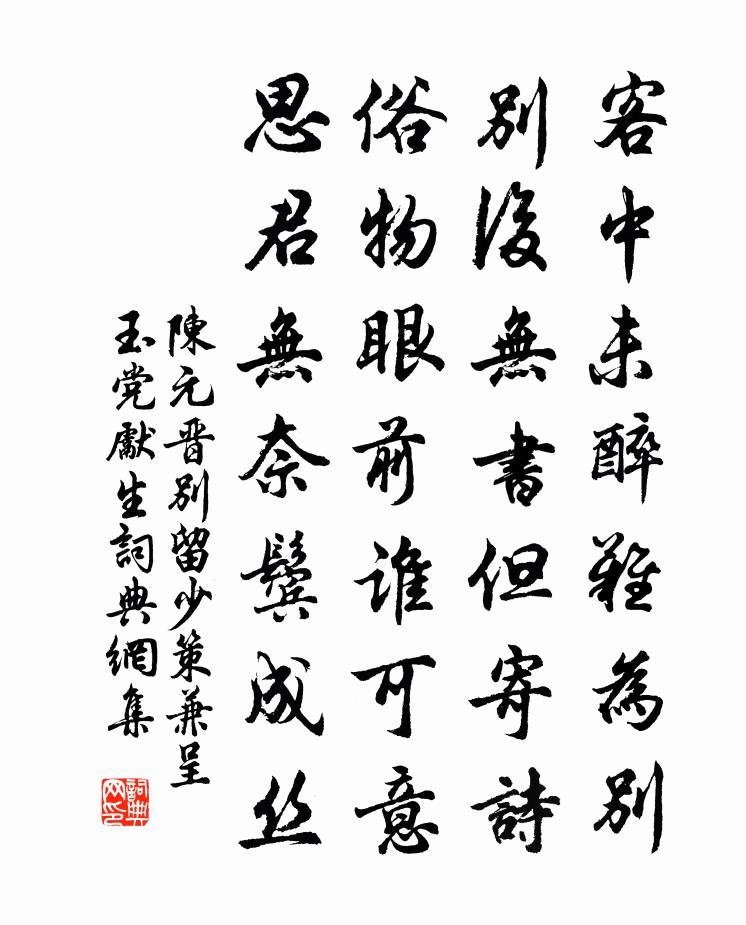 客中未醉難為別
別後無書但寄詩
俗物眼前誰可意
思君無奈鬢成丝
陳元晋別留少策兼呈
玉党獻生詞典網集
詞典
网印